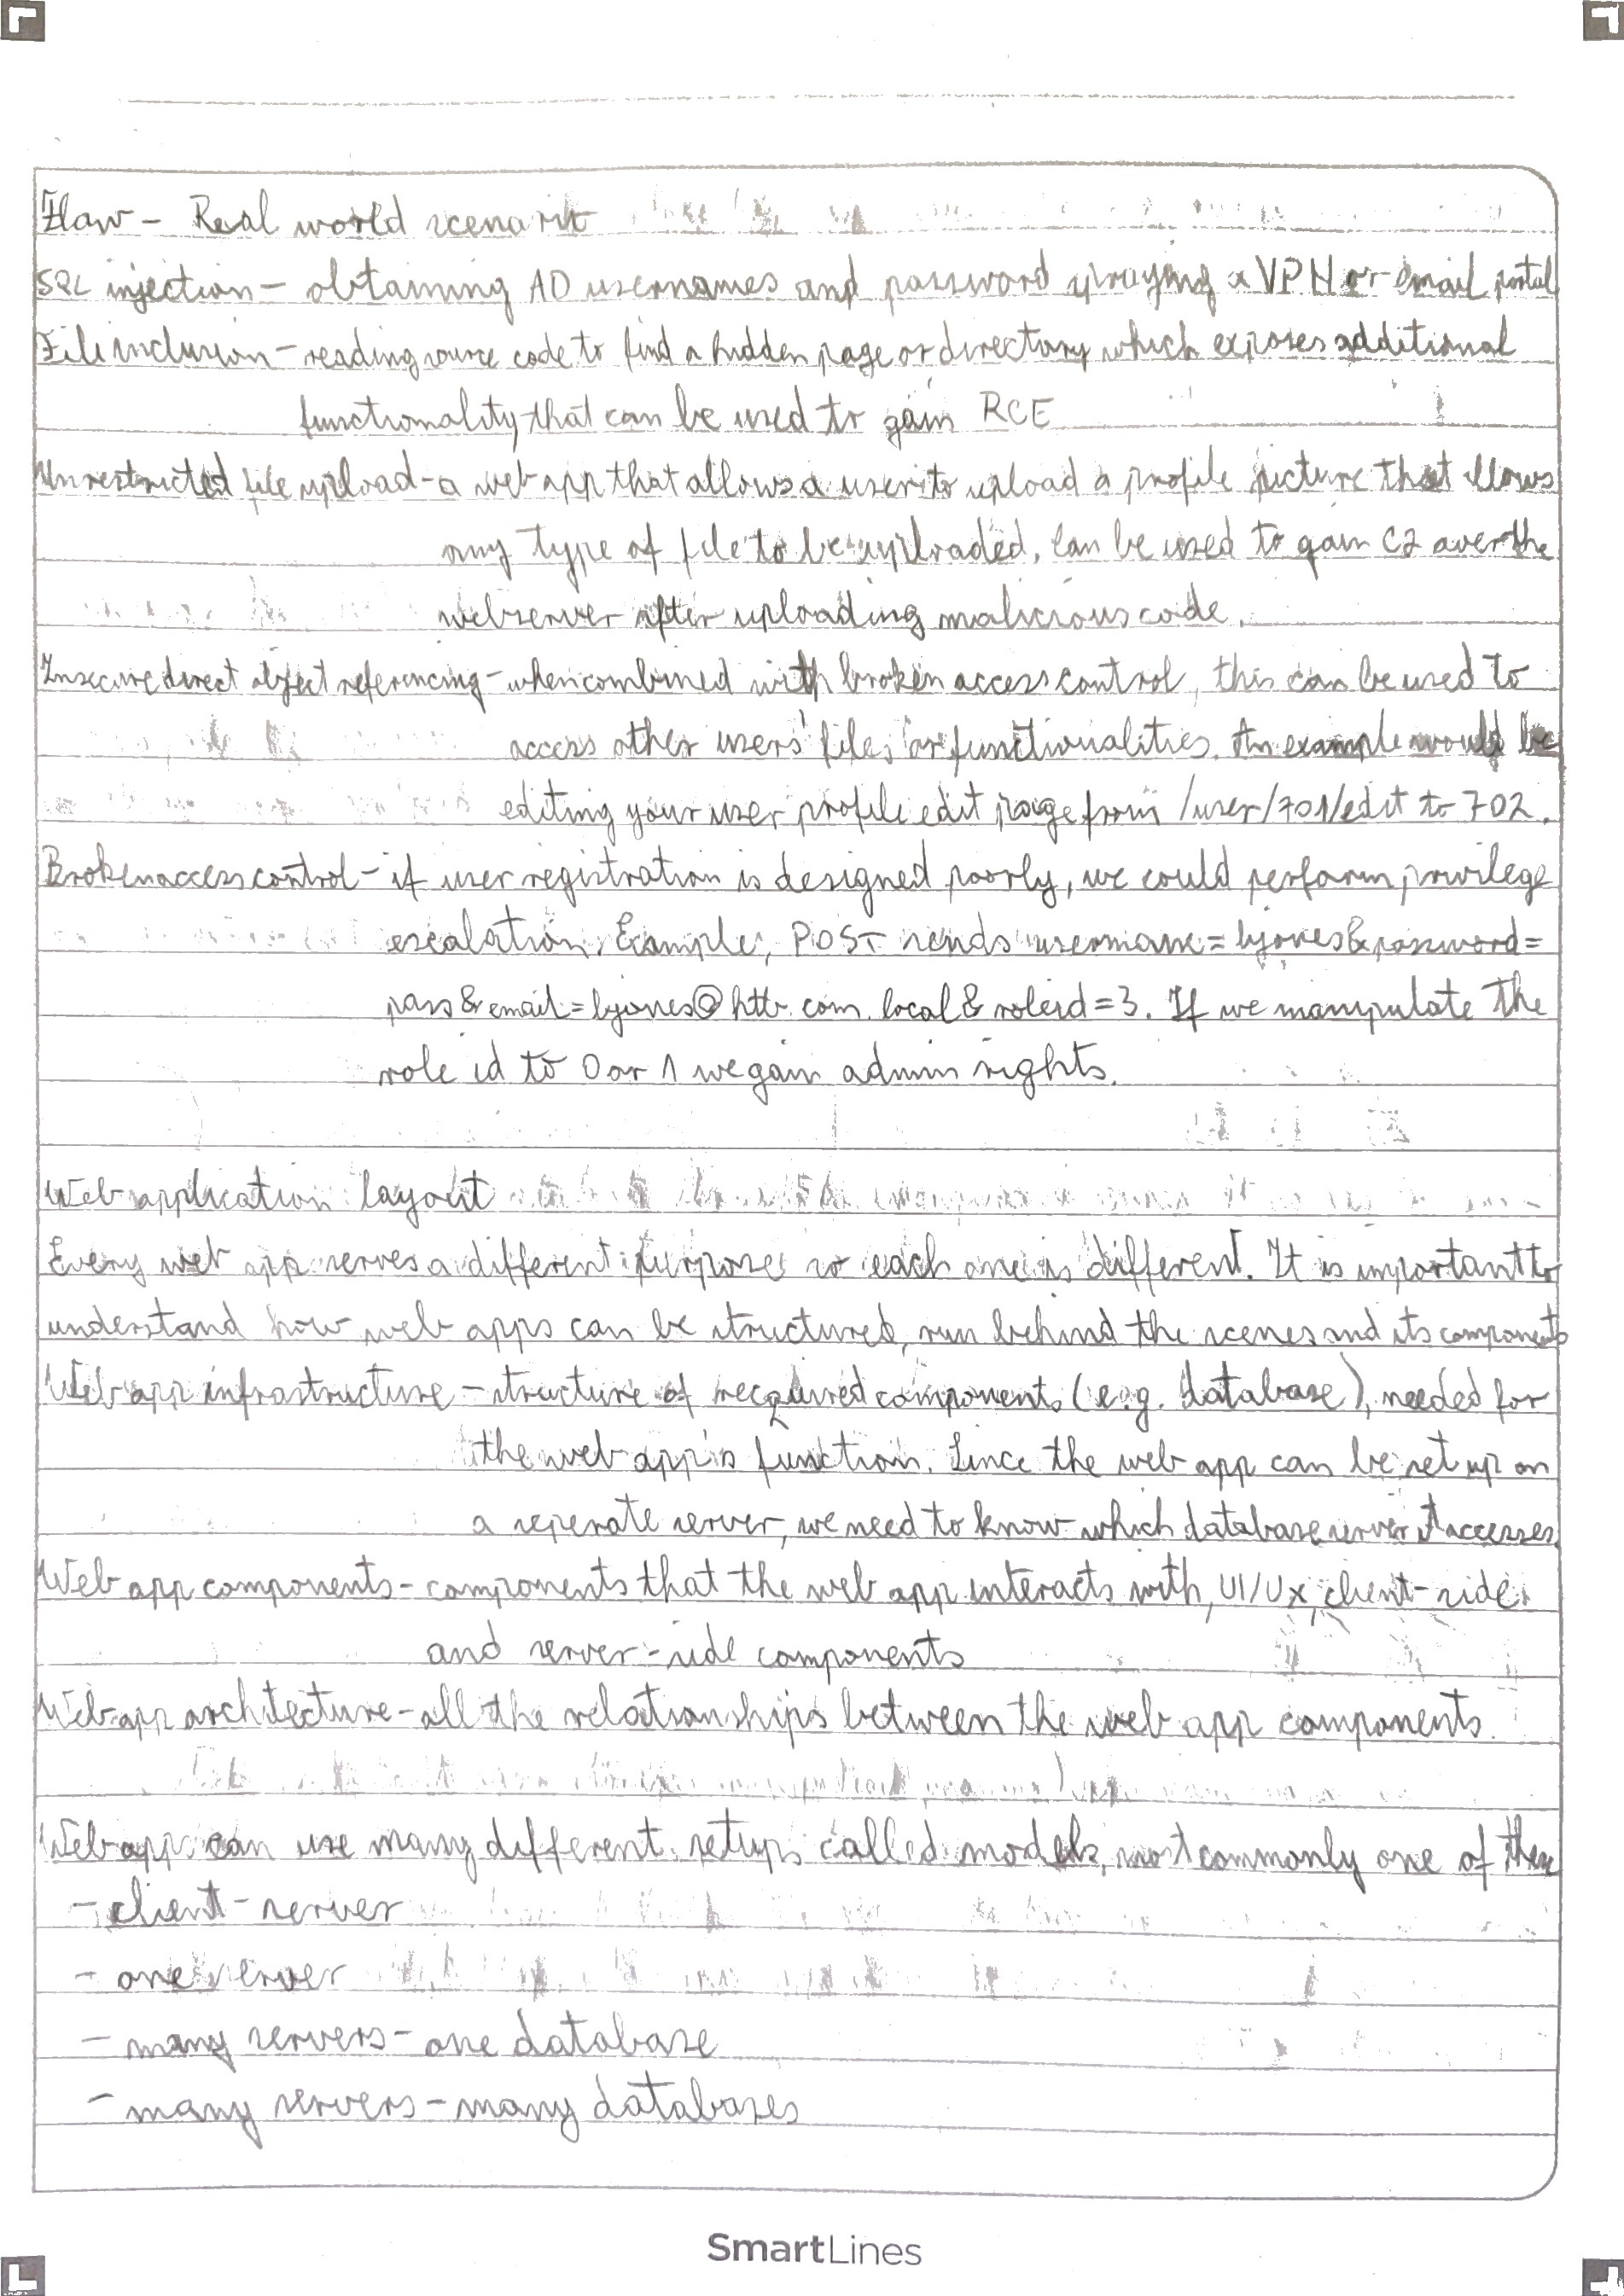 Flaw - Real world scenario
SQL injection - obtaining AD usernames and password spraying a VPN or email portal
File inclusion - reading source code to find a hidden page or directory which exposes additional
functionality that can be used to gain RCE
Unrestricted file upload - a web app that allows a user to upload a profile picture that allows
any type of file to be uploaded. Can be used to gain C2 over the
webserver after uploading malicious code.
Insecure direct object referencing - when combined with broken access control, this can be used to
access other users' files or functionalities. An example would be
editing your user profile edit page from /user/701/edit to 702.
Broken access control - if user registration is designed poorly, we could perform privilege
escalation. Example, POST sends username=bjones&password=
pass&email=bjones@htb.com.local&roleid=3. If we manipulate the
role id to 0 or 1 we gain admin rights.
Web application layout
Every web app serves a different purpose so each one is different. It is important to
understand how web apps can be structured, run behind the scenes and its components
Web app infrastructure - structure of required components (e.g. database), needed for
the web app's function. Since the web app can be set up on
a seperate server, we need to know which database server it accesses.
Web app components - components that the web app interacts with, UI/UX, client-side
and server-side components
Web app architecture - all the relationships between the web app components.
Web app can use many different setups called models, most commonly one of these
- client - server
- one server
- many servers - one database
- many servers - many databases
SmartLines